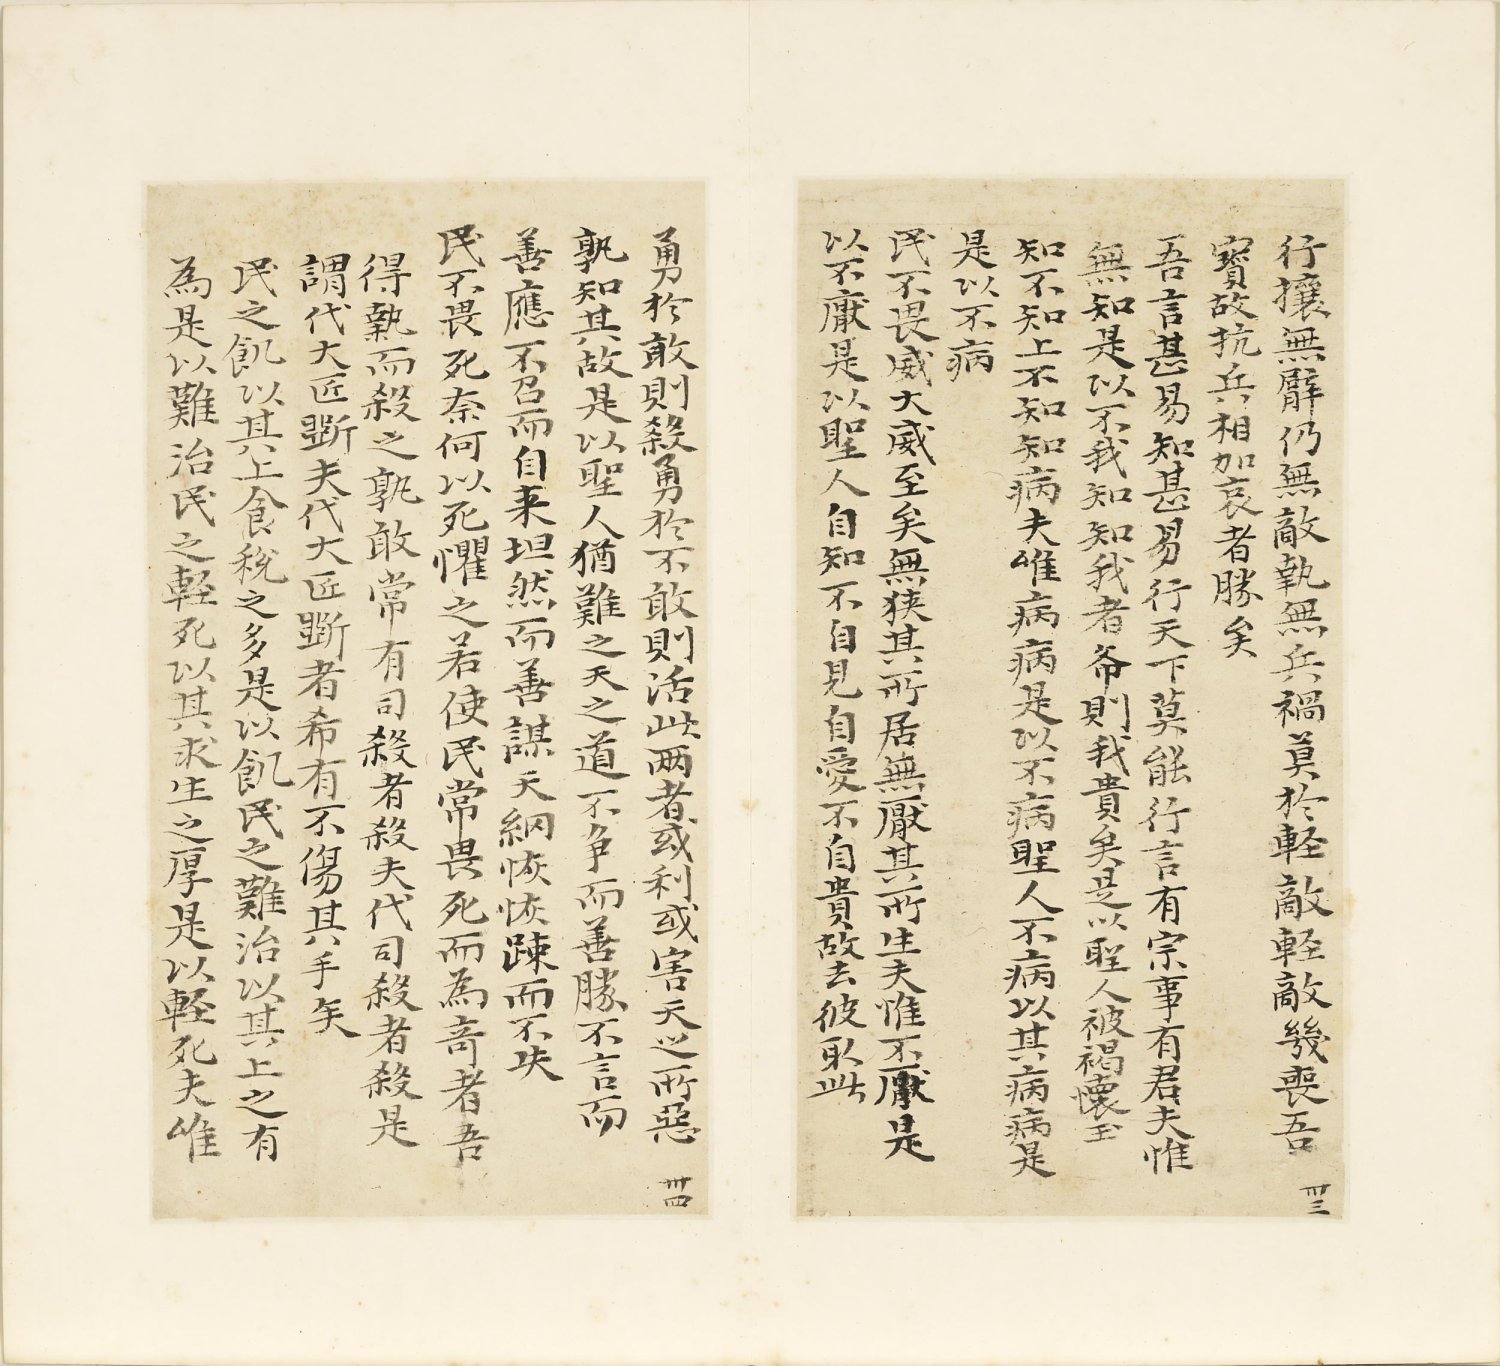 行攘無臂仍無敵執無兵禍莫於軽敵軽敵幾喪吾
寳故抗兵相加哀者勝矣
吾言甚易知甚易行天下莫能行言有宗事有君夫惟
無知是以不我知知我者希則我貴矣是以聖人被褐懷玉
知不知上不知知病夫唯病病是以不病聖人不病以其病病是
是以不病
民不畏威大威至矣無狭其所居無厭其所生夫惟不厭是
以不厭是以聖人自知不自見自愛不自貴故去彼取此
卅三
勇於敢則殺勇於不敢則活此兩者或利或害天之所惡
孰知其故是以聖人猶難之天之道不争而善勝不言而
善應不召而自来坦然而善謀天網恢恢踈而不失
民不畏死奈何以死懼之若使民常畏死而為竒者吾
得執而殺之孰敢常有司殺者殺夫代司殺者殺是
謂代大匠斲夫代大匠斲者希有不傷其手矣
民之飢以其上食稅之多是以飢民之難治以其上之有
為是以難治民之軽死以其求生之厚是以軽死夫唯
卅四